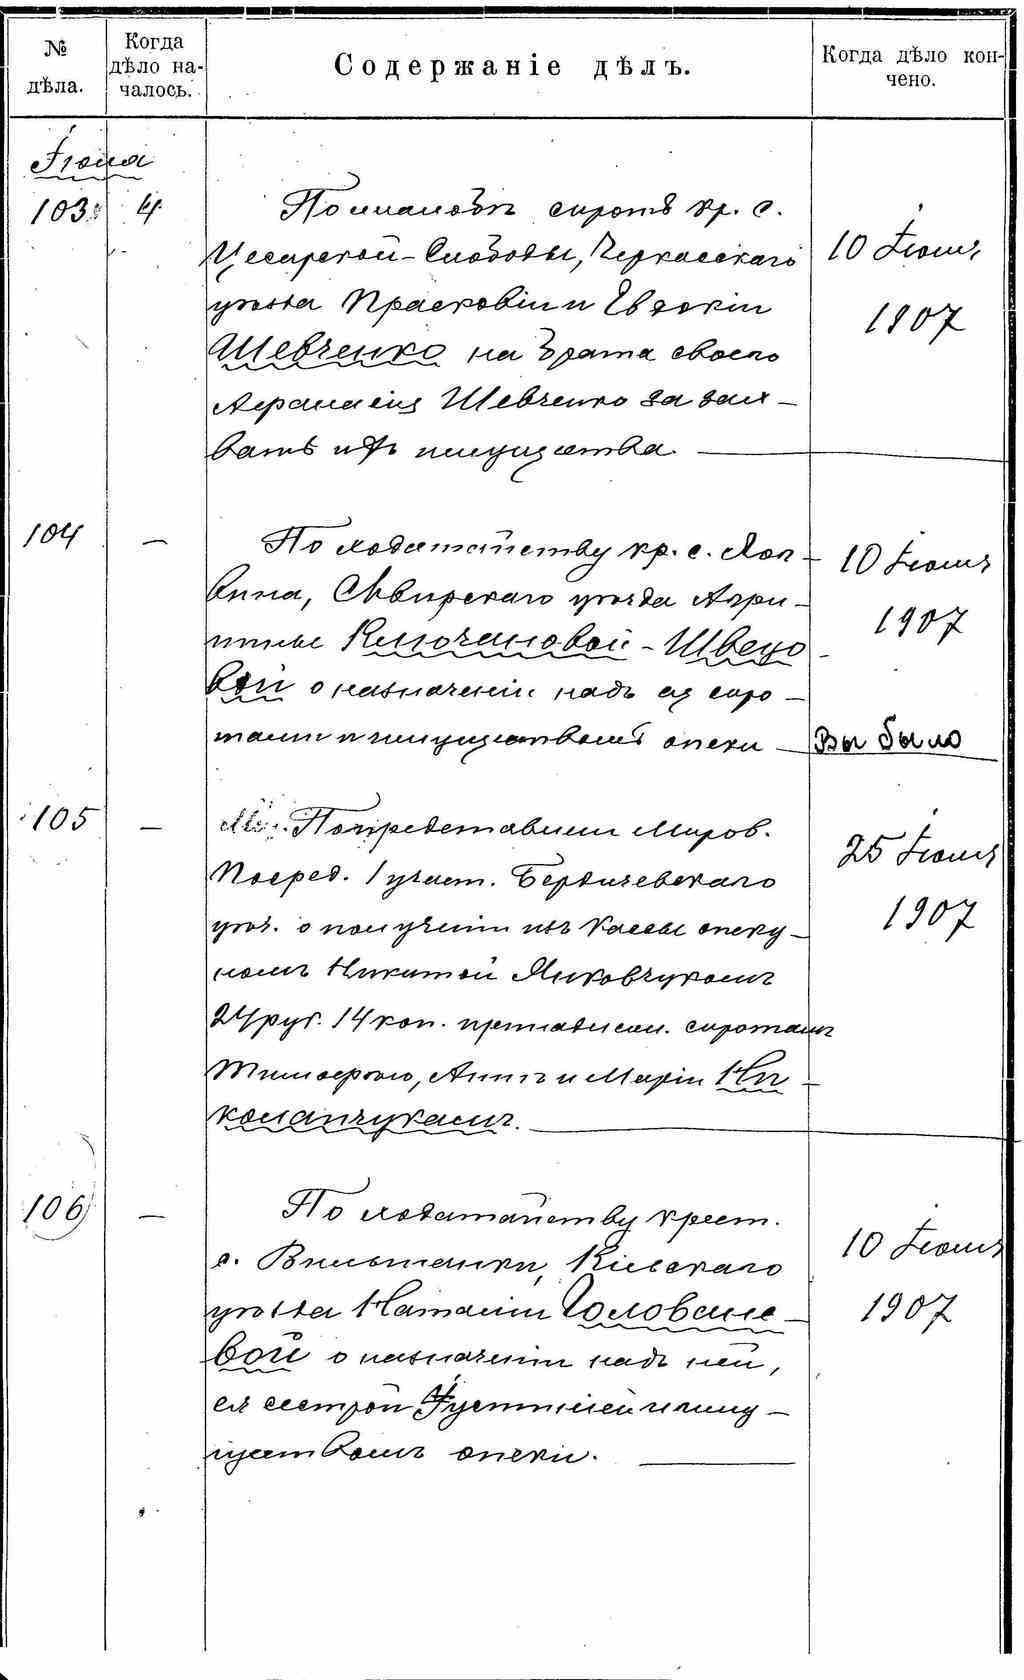 № дѣла.
Когда дѣло на-
чалось.
Содержаніе дѣлъ.
Когда дѣло кон-
чено.
Іюня
103 4 По жалобѣ сиротъ кр. с.
Цесарской-Слободы, Черкасскаго
уѣзда Прасковіи и Евдокіи
Шевченко на брата своего
Афанасія Шевченко за зах-
ватъ ихъ имущества.
10 Іюня
1907
104 — По ходатайству кр. с. Лоп-
вина, Сквирскаго уѣзда Агри-
пины Ключановой-Швецо
вой о назначеніи надъ ея сиро-
тами и имуществомъ опеки
10 Іюня
1907
Выбыло
105 — По представленію Миров.
Посред. 1 участ. Бердичевскаго
уѣз. о полученіи изъ кассы опеку-
номъ Никитой Янковчукомъ
24 руб. 14 коп. принадлеж. сиротамъ
Тимофею, Аннѣ и Маріи Ни-
коланчукамъ.
25 Іюня
1907
106 — По ходатайству крест.
с. Вильшанки, Кіевскаго
уѣзда Наталіи Головане-
вой о назначеніи надъ ней,
ея сестрой Устиніей и иму-
ществомъ опеки.
10 Іюня
1907